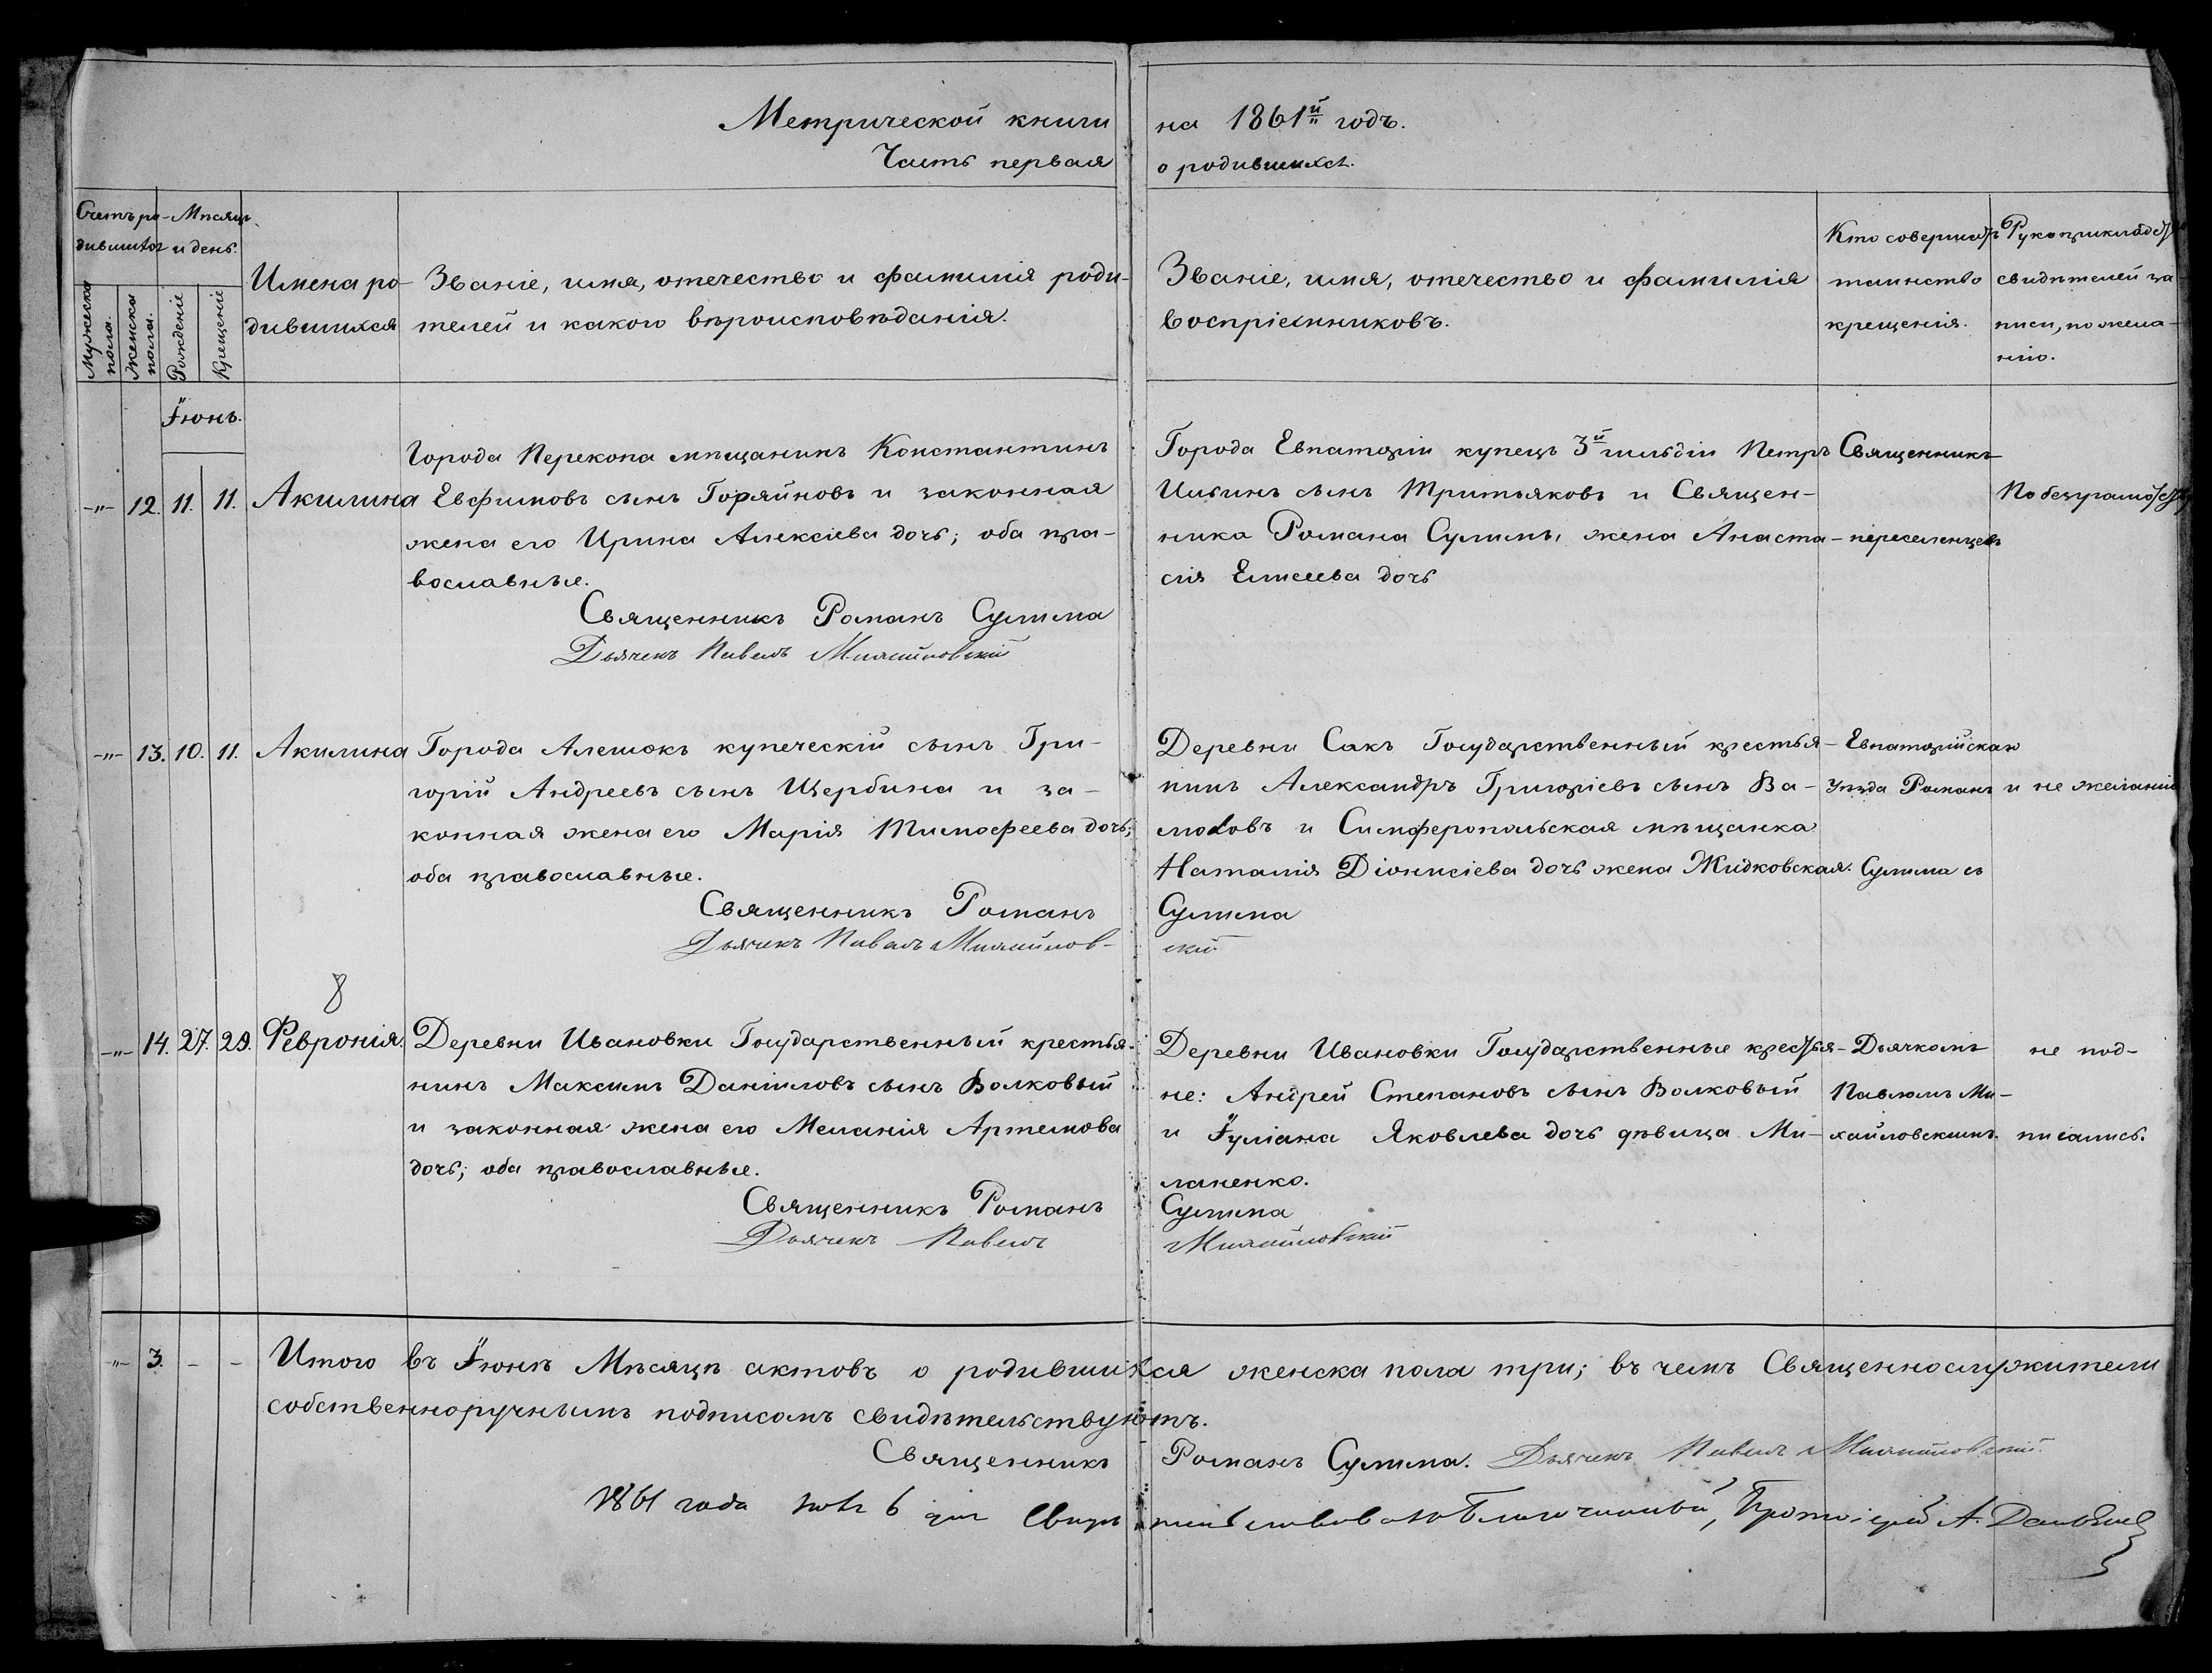 Метрической книги на 1861й годъ.
Часть первая о родившихся.
Счетъ ро-
дившихся
Мѣсяцъ
и день.
Мужеска
пола.
Женска
пола.
Рожденіе
Крещеніе
Имена ро-
дившихся
Званіе, имя, отечество и фамилія роди-
телей и какого вѣроисповѣданія.
Званіе, имя, отечество и фамилія
воспріемниковъ.
Кто совершалъ
таинство
крещенія.
Рукоприкладство
свидѣтелей за-
писи, по жела-
нію.
Іюнь.
-"- 12. 11. 11. Акилина
Города Перекопа мѣщанинъ Константинъ
Евфимовъ сынъ Горяйновъ и законная
жена его Ирина Алексіева дочь; оба пра-
вославные.
Священникъ Романъ Сулима
Дьячекъ Павелъ Михайловскій
Города Евпаторіи купецъ 3й гильдіи Петръ
Ильинъ сынъ Тритьяковъ и Священ-
ника Романа Сулимы, жена Анаста-
сія Елисеева дочь
Священникъ
переселенцевъ
По безграмотству
-"- 13. 10. 11. Акилина
Города Алешокъ купеческій сынъ Гри-
горій Андреевъ сынъ Щербина и за-
конная жена его Марія Тимофеева дочь;
оба православные.
Священникъ Романъ Сулима
Дьячекъ Павелъ Михайлов-скій
Деревни Сакъ Государственный крестья-
нинъ Александръ Григоріевъ сынъ Ва-
ловъ и Симферопольская мѣщанка
Наталія Діонисіева дочь жена Жидковская.
Евпаторійскаго
Уѣзда Романъ
Сулима съ
и не желанію
8
-"- 14. 27. 29. Февронія.
Деревни Ивановки Государственный крестья-
нинъ Максимъ Даніиловъ сынъ Волковый
и законная жена его Меланія Артемова
дочь; оба православные.
Священникъ Романъ Сулима
Дьячекъ Павелъ Михайловскій
Деревни Ивановки Государственные крестья-
не: Андрей Степановъ сынъ Волковый
и Іуліана Яковлева дочь дѣвица Ми-
ланенко.
Дьячкомъ
Павломъ Ми-
хайловскимъ.
не под-
писались.
-"- 3. - - Итого въ Іюнѣ Мѣсяцѣ актовъ о родившихся женска пола три; въ чемъ Священнослужители
собственноручнымъ подписомъ свидѣтельствуютъ.
Священникъ Романъ Сулима. Дьячекъ Павелъ Михайловскій.
1861 года 6 дня Свидѣтельствовалъ Благочинный, Протоіерей А.